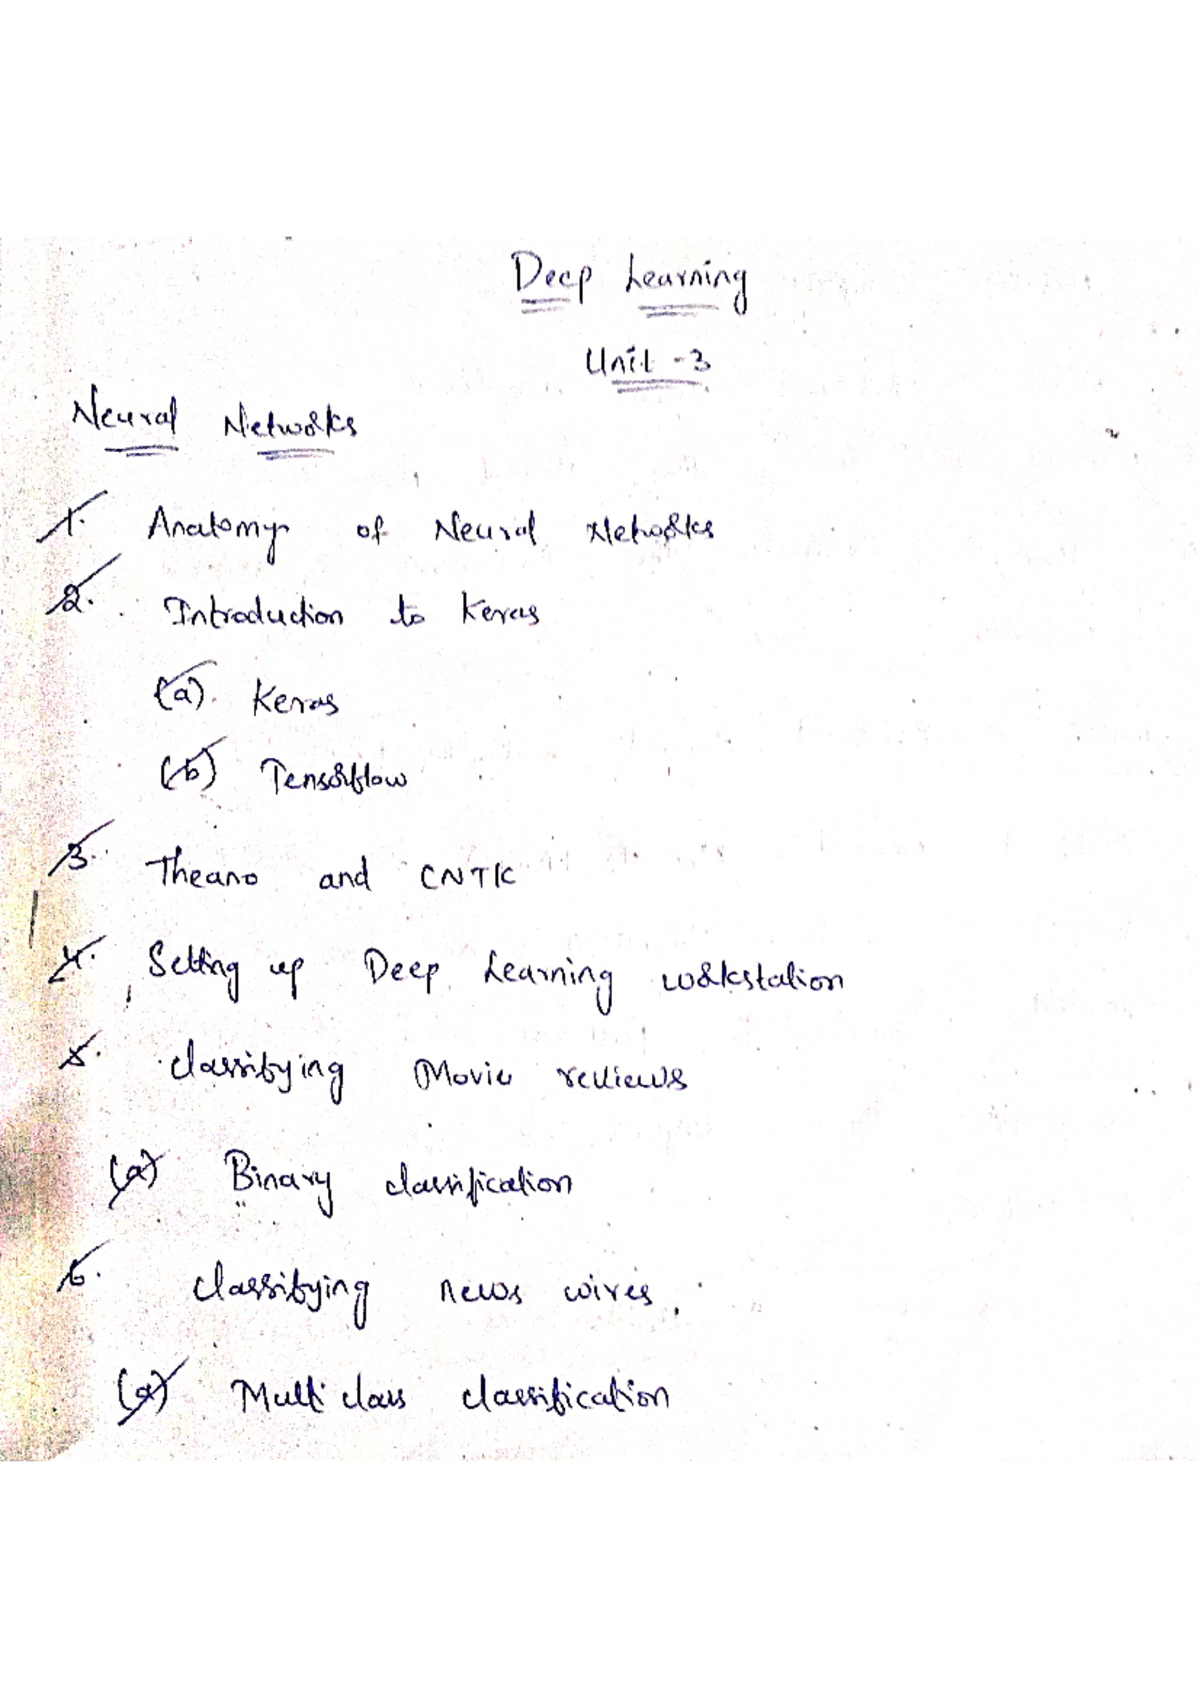 Deep Learning
Unit - 3
Neural Networks
1. Anatomy of Neural Networks
2. Introduction to Keras
(a). Keras
(b) Tensorflow
3. Theano and CNTK
4. Setting up Deep Learning workstation
5. classifying Movie reviews
(a) Binary classification
6. classifying news wires.
(a) Multi class classification